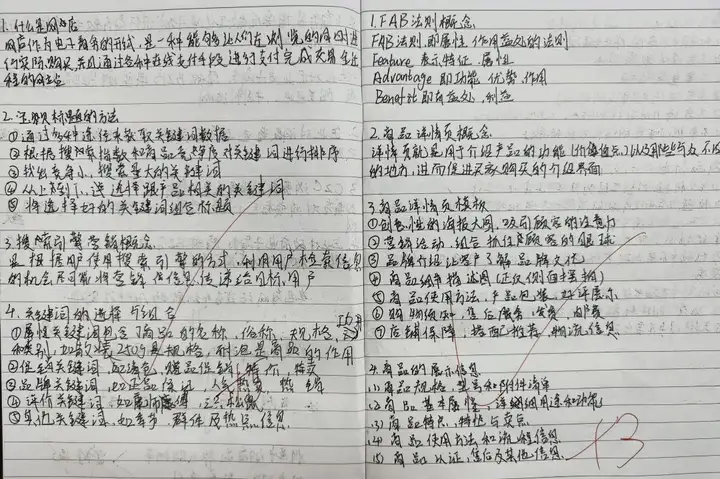 1.什么是网店
网店作为电子商务的形式,是一种能够让人们在浏览的同时进
行实际购买,并且通过各种在线支付手段进行支付完成交易全过
程的网站
2.标题的方法
①通过各种途径来获取关键词数据
②根据搜索指数和商品竞争度对关键词进行排序
③找出竞争小,搜索量大的关键词
④从上到下,选择跟产品相关的关键词
⑤将选择好的关键词组合标题
3.搜索引擎营销概念
是根据用户使用搜索引擎的方式,利用用户检索信息
的机会尽可能将营销信息传递给目标用户
4.关键词的选择与组合
①属性关键词包含了商品的名称,俗称,规格,功用
和类别,
②促销关键词,如清仓,赠品促销,特价,特卖
③品牌关键词,
④评价关键词,
⑤其他关键词,如季节,群体及热点信息
1.FAB法则概念
FAB法则即属性,作用益处的法则
Feature 表示特征,属性
Advantage 即功能,优势,作用
Benefit 即有益处,利益
2.商品详情页概念
详情页就是用于介绍产品的功能
的地方,进而促进买家购买的介绍界面
3.商品详情页模板
①创意性的海报大图,吸引顾客的注意力
②营销活动,组合抓住顾客的眼球
③品牌介绍让客户了解品牌文化
④商品细节描述图(正反侧面摆拍)
⑤商品使用方法,产品包装,好评展示
⑥购物须知,售后服务,发货,邮费
⑦店铺保障,搭配推荐,物流信息
4.商品的展示信息
(1)商品规格,型号和附件清单
(2)商品基本属性,详细用途和功能
(3)商品特点,特性与卖点
(4)商品使用方法和流程信息
(5)商品认证,售后及其他信息